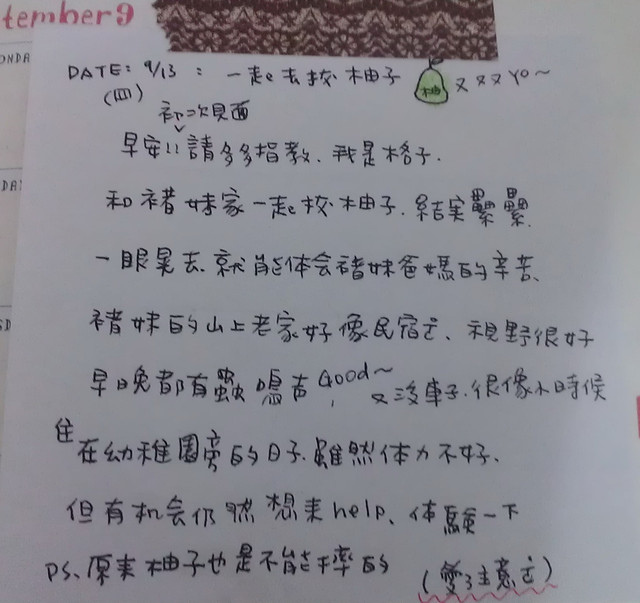 tember 9
ONDA
DATE: 9/13 : 一起去採柚子 柚 ㄡㄡㄡYO~
(四)
初次見面
早安!! 請多多指教、我是格子.
DA
和褚妹家一起採柚子. 結実纍纍.
一眼晃去、就能体会褚妹爸媽的辛苦、
SD
褚妹的山上老家好像民宿ㄛ、視野很好
早晚都有蟲鳴声 Good~ 又沒車子. 很像小時候
住在幼稚園旁的日子. 雖然体力不好.
但有机会仍然想来help、体驗一下
PS、原来柚子也是不能摔的 (要注意ㄛ)